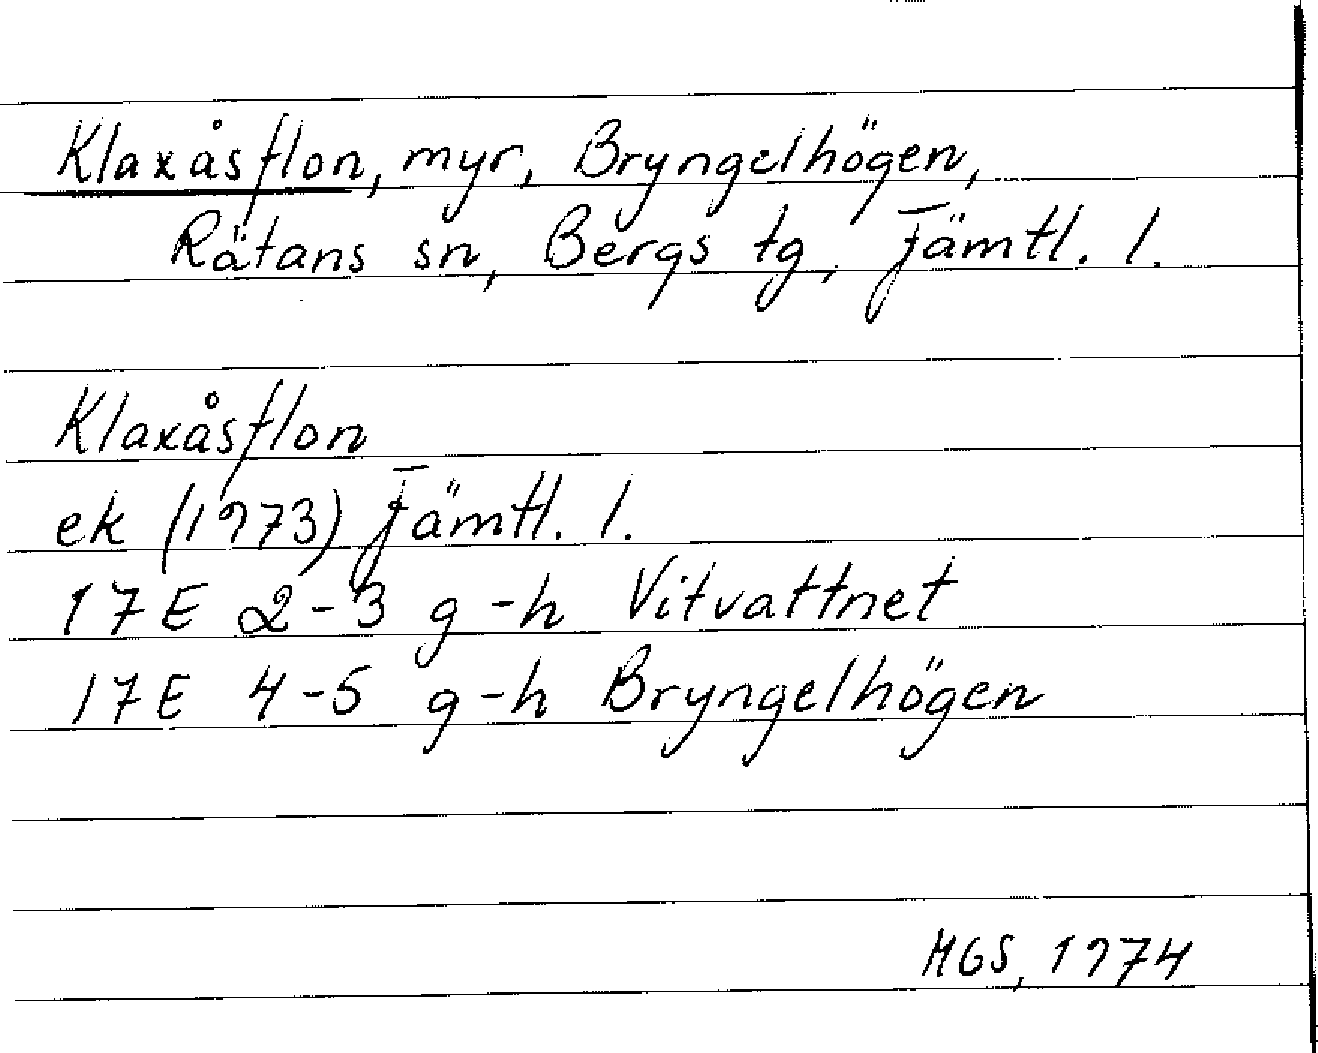 Klaxåsflon, myr, Bryngelhögen,
Rätans sn, Bergs tg, Jämtl. l.
Klaxåsflon
ek (1973) Jämtl. l.
17E 2-3 g-h Vitvattnet
17E 4-5 g-h Bryngelhögen
MGS, 1974